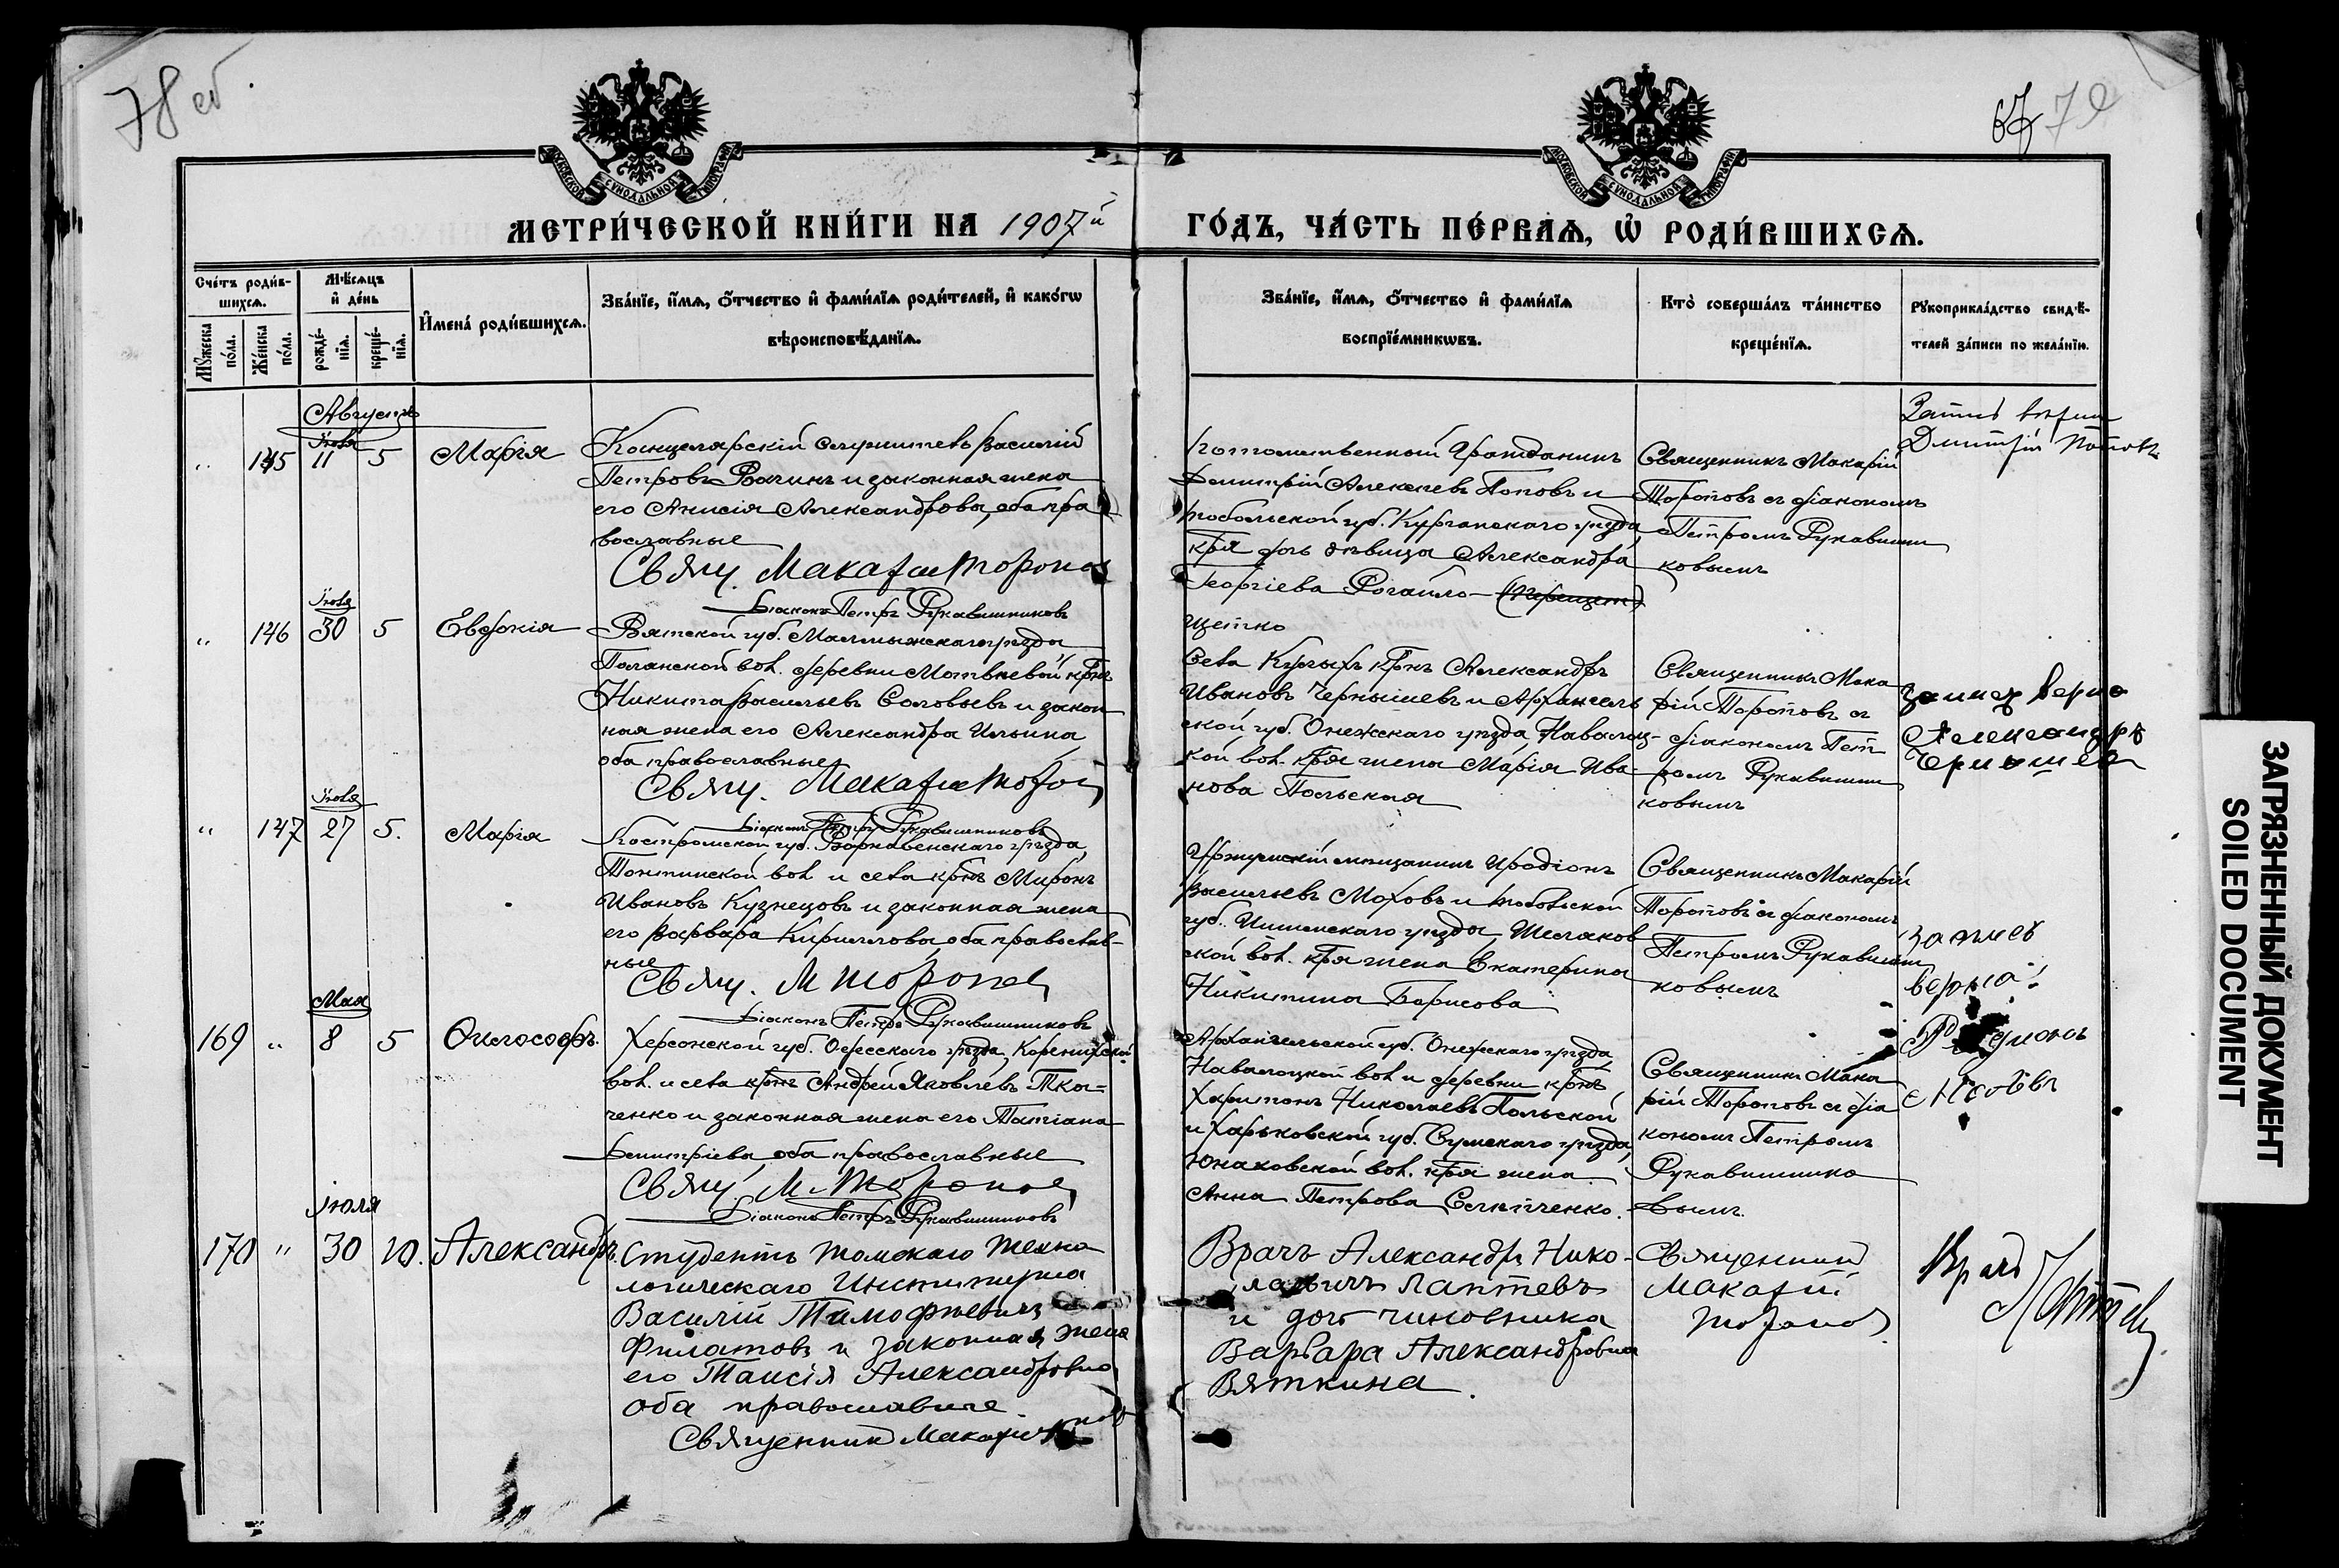 78 об.
67 79
МОСКОВСКОЙ СѴНОДАЛЬНОЙ ТИПОГРАФІИ
МОСКОВСКОЙ СѴНОДАЛЬНОЙ ТИПОГРАФІИ
МЕТРИ́ЧЕСКОЙ КНИ́ГИ НА 1907й
ГО́ДЪ, ЧА́СТЬ ПЕ́РВАѦ, Ѡ РОДИ́ВШИХСѦ.
Сче́тъ роди́в-
шихсѧ.
Мꙋ́жеска по́ла.
Же́нска по́ла.
Мѣ́сѧцъ
и де́нь
рожде́-нїѧ.
креще́-нїѧ.
Имена́ роди́вшихсѧ.
Зва́нїе, и́мѧ, о́тчество и фами́лїѧ роди́телей, и како́гѡ
вѣроисповѣ́данїѧ.
Зва́нїе, и́мѧ, о́тчество и фами́лїѧ
воспрїе́мникѡвъ.
Кто̀ соверша́лъ та́инство
креще́нїѧ.
Рꙋкоприкла́дство свидѣ́-
телей за́писи по жела́нїю.
Августъ
Іюля
„ 145 11 5 Марія
Канцелярскій служитель Василій
Петровъ Рачинъ и законная жена
его Анисія Александрова, оба пра
вославные
Свящ. Макарій Торопов
Діаконъ Петръ Рукавишниковъ
Потомственный Гражданинъ
Димитрій Алексеевъ Поповъ и
Тобольской губ. Курганскаго уезда,
кр-я дочь девица Александра
Георгіева Рогайло-
щетко
Священникъ Макарій
Торопов съ діакономъ
Петромъ Рукавишни
ковымъ
Запись верна
Дмитрій Поповъ
Іюля
„ 146 30 5 Евдокія
Вятской губ. Малмыжскаго уезда
Полянской вол. деревни Матвеевой кр-нъ
Никита Васильевъ Соловьевъ и закон
ная жена его Александра Ильина
оба православные
Свящ. Макарій Тороп
Діаконъ Петръ Рукавишниковъ
Села кр-нъ Александръ
Ивановъ Чернышевъ и Архангель
ской губ. Онежскаго уезда Наволоц-
кой вол. кр-я жена Марія Ива-
нова Польская
Священникъ Мака
рій Торопов съ
діакономъ Пет
ромъ Рукавишни
ковымъ
запись верно
Александръ
Чернышев
Іюля
„ 147 27 5. Марія
Костромской губ. Варнавинскаго уезда,
Тонкинской вол и села кр-нъ Миронъ
Ивановъ Кузнецовъ и законная жена
его Варвара Кириллова, оба православ-
ные
Свящ. М Торопов
Діаконъ Петръ Рукавишниковъ
Уржумскій мещанинъ Иродіонъ
Васильевъ Моховъ и Тобольской
губ. Ишимскаго уезда
ской вол. кр-я жена Екатерина
Никитина Борисова
Священникъ Макарій
Торопов съ діакономъ
Петромъ Рукавишни
ковымъ
запись
верна
Моховъ
Мая
169 „ 8 5 Философъ.
Херсонской губ. Одесскаго уезда,
вол. и села кр-нъ Андрей Яковлевъ Тка-
ченко и законная жена его Татіана
Димитріева оба православные
Свящ. М. Торопов
Діаконъ Петръ Рукавишниковъ
Архангельской губ. Онежскаго уезда
Наволоцкой вол и деревни кр-нъ
Харитонъ Николаевъ Польской
и Харьковской губ. Сумскаго уезда,
Юнаковской вол. кр-я жена
Анна Петрова
Священникъ Мака
рій Торопов съ діа
кономъ Петромъ
Рукавишнико
вымъ.
Іюля
170 „ 30 10. Александръ.
Студентъ Томскаго Техно
логическаго Института
Василій Тимофеевичъ
Филатовъ и законная жена
его Таисія Александровна
оба православные
Священник Макарій Торопов
Врачъ Александръ Нико-
лаевичъ Лаптевъ
и дочь чиновника
Варвара Александровна
Вяткина.
Священник
Макарій
Торопов
Врачъ
Лаптевъ
ЗАГРЯЗНЕННЫЙ ДОКУМЕНТ
SOILED DOCUMENT